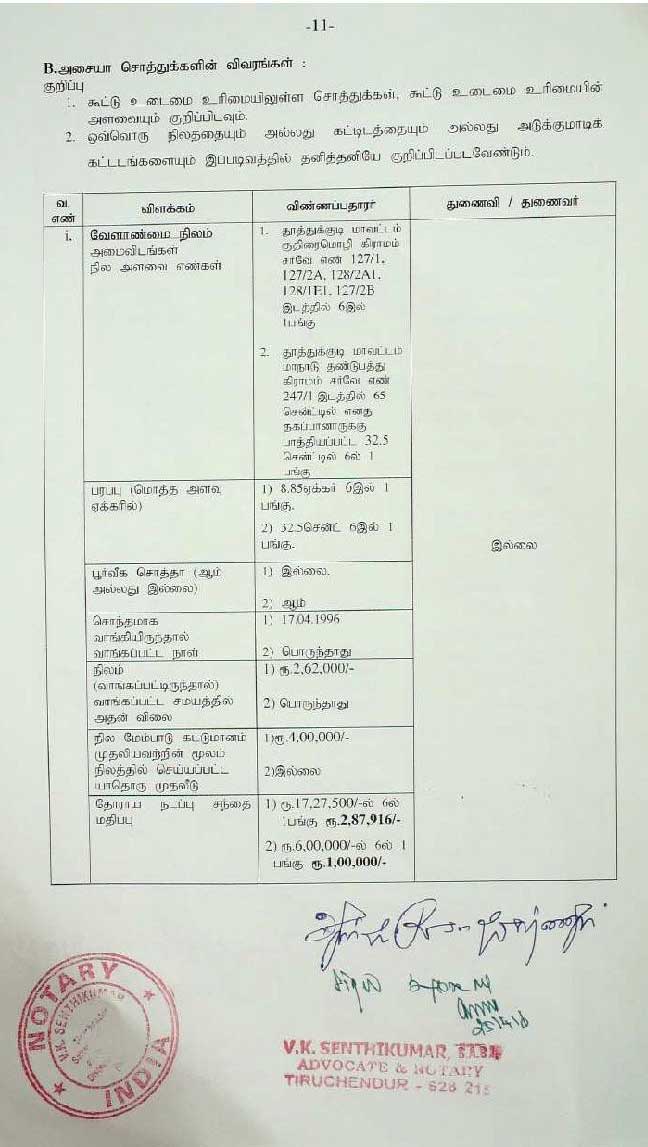 -11-
B.அசையா சொத்துக்களின் விவரங்கள் :
குறிப்பு
1. கூட்டு உடைமை உரிமையிலுள்ள சொத்துக்கள், கூட்டு உடைமை உரிமையின்
அளவையும் குறிப்பிடவும்.
2. ஒவ்வொரு நிலத்தையும் அல்லது கட்டிடத்தையும் அல்லது அடுக்குமாடிக்
கட்டடங்களையும் இப்படிவத்தில் தனித்தனியே குறிப்பிடப்படவேண்டும்.
வ.
எண்
விளக்கம்
விண்ணப்பதாரர்
துணைவி / துணைவர்
i.
வேளாண்மை நிலம்
அமைவிடங்கள்
நில அளவை எண்கள்
1. தூத்துக்குடி மாவட்டம்
குதிரைமொழி கிராமம்
சர்வே எண் 127/1,
127/2A, 128/2A1,
128/1E1, 127/2B
இடத்தில் 6இல்
1பங்கு
2. தூத்துக்குடி மாவட்டம்
மாநாடு தண்டுபத்து
கிராமம் சர்வே எண்
247/1 இடத்தில் 65
சென்ட்டில் எனது
தகப்பானாருக்கு
பாத்தியப்பட்ட 32.5
சென்ட்டில் 6ல் 1
பங்கு
பரப்பு (மொத்த அளவு
ஏக்கரில்)
1) 8.85ஏக்கர் 6இல் 1
பங்கு.
2) 32.5சென்ட் 6இல் 1
பங்கு.
இல்லை
பூர்வீக சொத்தா (ஆம்
அல்லது இல்லை)
1) இல்லை.
2) ஆம்
சொந்தமாக
வாங்கியிருந்தால்
வாங்கப்பட்ட நாள்
1) 17.04.1996
2) பொருந்தாது
நிலம்
(வாங்கப்பட்டிருந்தால்)
வாங்கப்பட்ட சமயத்தில்
அதன் விலை
1) ரூ.2,62,000/-
2) பொருந்தாது
நில மேம்பாடு கட்டுமானம்
முதலியவற்றின் மூலம்
நிலத்தில் செய்யப்பட்ட
யாதொரு முதலீடு
1)ரூ.4,00,000/-
2)இல்லை
தோராய நடப்பு சந்தை
மதிப்பு
1) ரூ.17,27,500/-ல் 6ல்
1பங்கு ரூ.2,87,916/-
2) ரூ.6,00,000/-ல் 6ல் 1
பங்கு ரூ.1,00,000/-
NOTARY
V.K. SENTHIKUMAR
INDIA
V.K. SENTHIKUMAR,
ADVOCATE & NOTARY
TIRUCHENDUR - 628 215